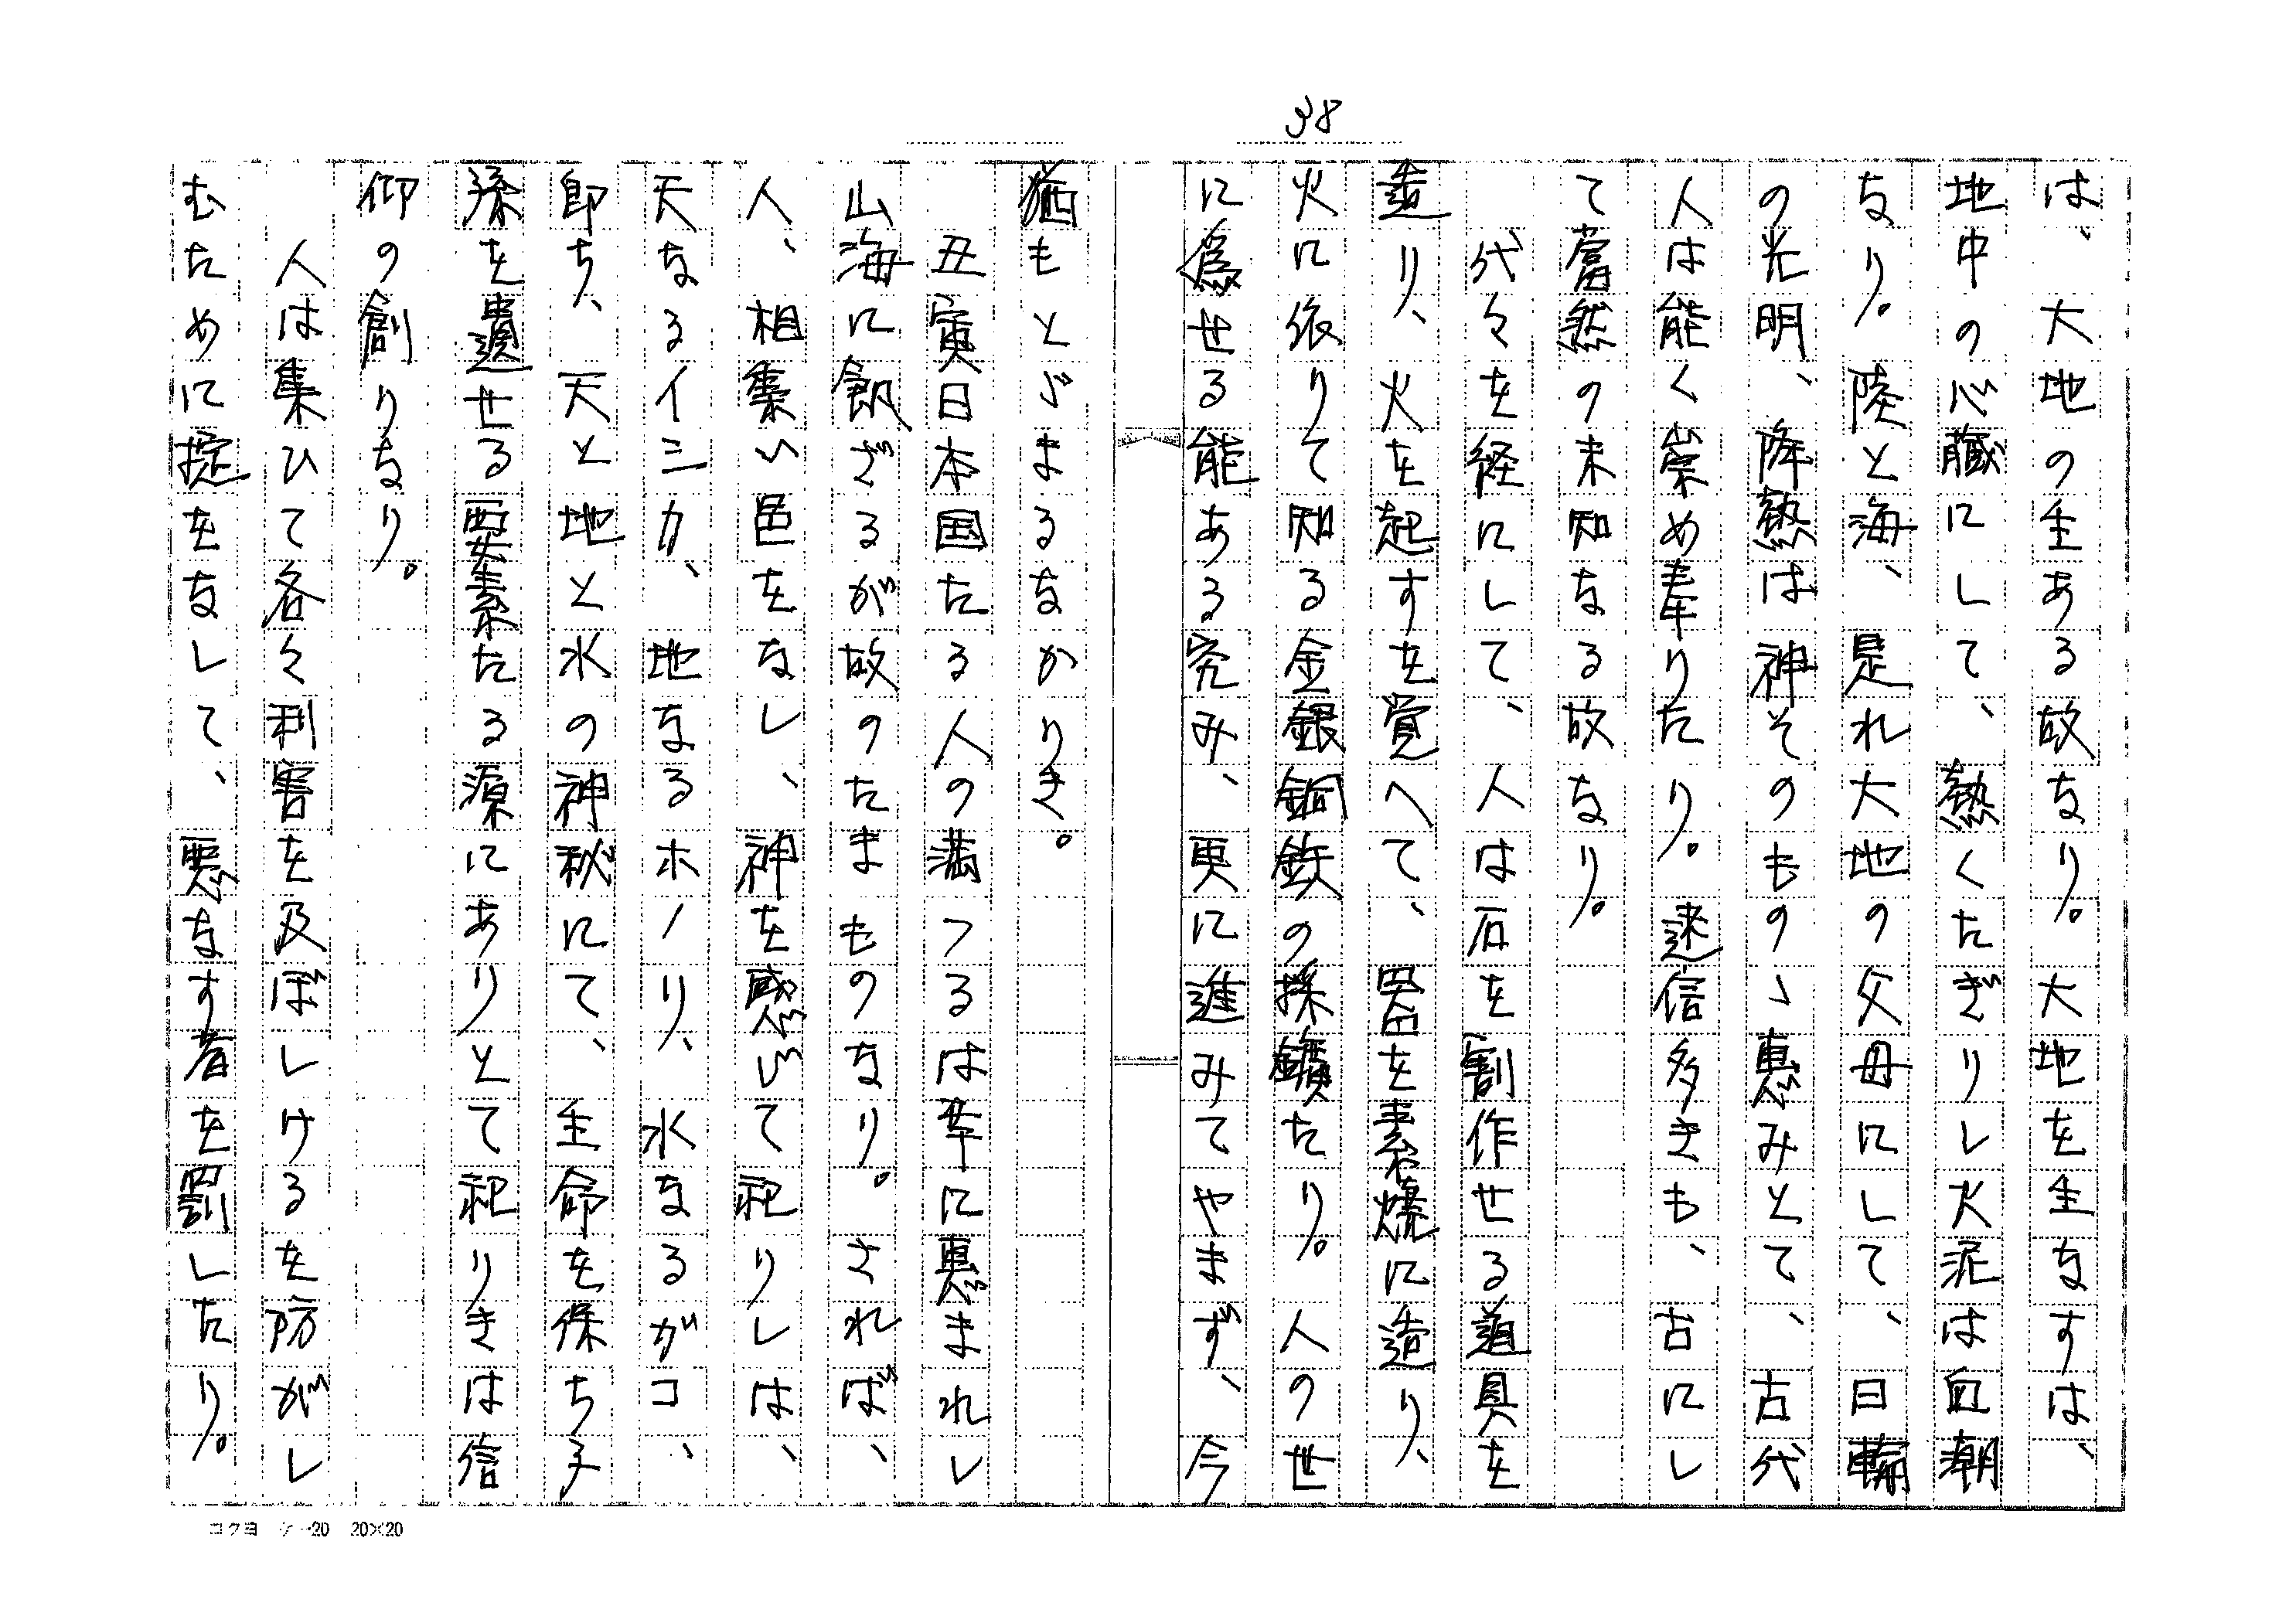 38
は、大地の生ある故なり。大地を生なすは、
地中の心臓にして、熱くたぎりし火泥は血潮
なり。陸と海、是れ大地の父母にして、日輪
の光明、降熱は神そのものゝ惠みとて、古代
人は能く崇め奉りたり。迷信多きも、古にし
て當然の未知なる故なり。
代々を経にして、人は石を割作せる道具を
造り、火を起すを覚へて、器を素焼に造り、
火に依りて知る金銀銅鉄の採鑛たり。人の世
に為せる能ある究み、更に進みてやまず、今
猶もとどまるなかりき。
丑寅日本国たる人の満つるは幸に惠まれし
山海に飢ざるが故のたまものなり。されば、
人、相集い邑をなし、神を感びて祀りしは、
天なるイシカ、地なるホノリ、水なるガコ、
即ち、天と地と水の神秘にて、生命を保ち子
孫を遺せる要素たる源にありとて祀りきは信
仰の創りなり。
人は集ひて各々利害を及ぼしけるを防がし
むために掟をなして、悪なす者を罰したり。
コクヨ ケー20 20×20